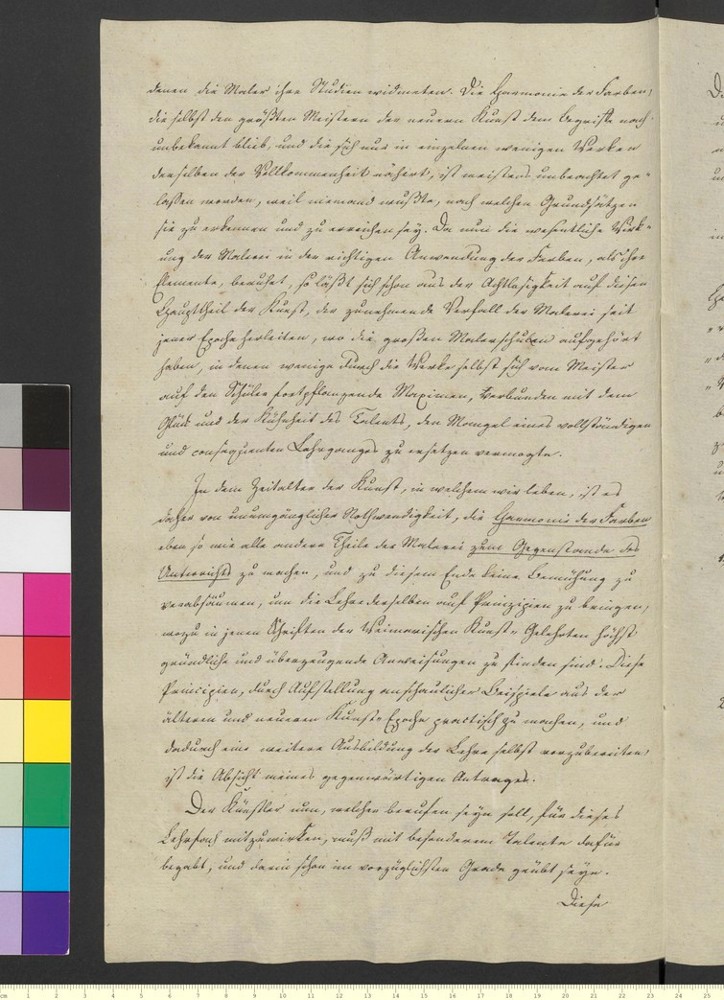 denen die Maler ihre Studien widmeten. Die Harmonie der Farben,
die selbst den größten Meistern der neuern Kunst dem Begriffe nach
unbekannt blieb, und die sich nur in einzelnen wenigen Werken
derselben der Vollkommenheit nähert, ist meistens unbeachtet ge-
lassen worden, weil niemand wußte, nach welchen Grundsätzen
sie zu erkennen und zu erreichen sey. Da nun die wesentliche Wirk-
ung der Malerei in der richtigen Anwendung der Farben, als ihre
Elemente, beruhet, so läßt sich schon aus der Achtlosigkeit auf diesen
Haupttheil der Kunst, der zunehmende Verfall der Malerei seit
jener Epoche herleiten, wo die großen Malerschulen aufgehört
haben, in denen wenige durch die Werke selbst sich vom Meister
auf den Schüler fortpflanzende Maximen, verbunden mit dem
Glück und der Kühnheit des Talents, den Mangel eines vollständigen
und consequenten Lehrganges zu ersetzen vermogte.
In dem Zeitalter der Kunst, in welchem wir leben, ist es
daher von unumgänglicher Nothwendigkeit, die Harmonie der Farben
eben so wie alle andere Theile der Malerei zum Gegenstande des
Unterrichts zu machen, und zu diesem Ende keine Bemühung zu
verabsäumen, um die Lehre derselben auf Prinzipien zu bringen,
wozu in jenen Schriften der Weimarischen Kunst-Gelehrten höchst
gründliche und überzeugende Anweisungen zu finden sind. Diese
Principien, durch Aufstellung anschaulicher Beispiele aus der
ältern und neueren Kunst-Epoche practisch zu machen, und
dadurch eine weitere Ausbildung der Lehre selbst vorzubereiten,
ist die Absicht meines gegenwärtigen Antrages.
Der Künstler nun, welcher berufen seyn soll, für dieses
Lehrfach mitzuwirken, muß mit besonderem Talente dafür
begabt, und darin schon im vorzüglichsten Grade geübt seyn.
Diese